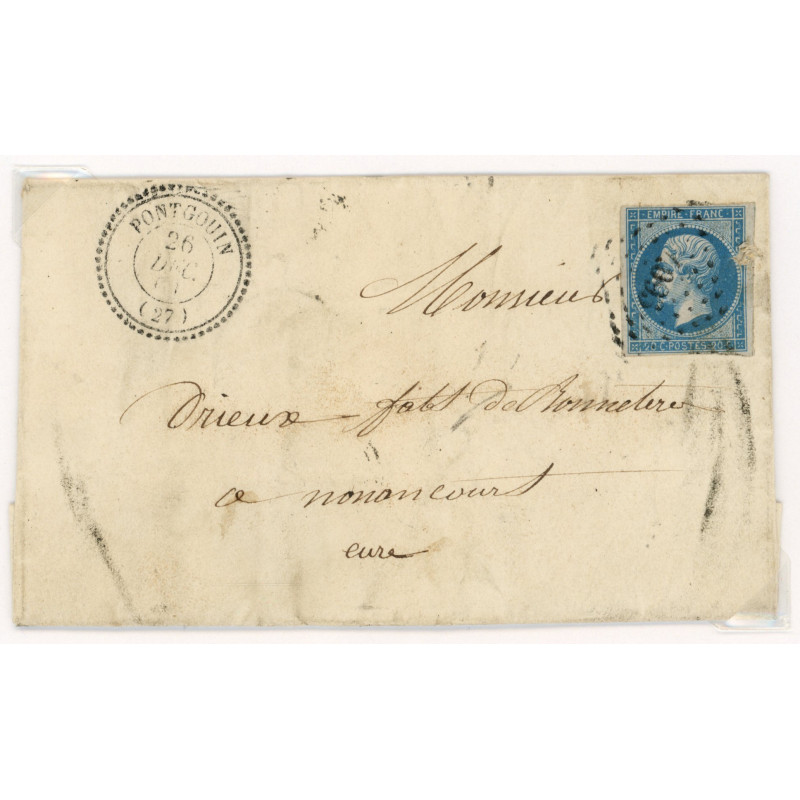 PONTGOUIN
26
DEC.
(27)
EMPIRE · FRANC
20 C · POSTES · 20 C
Monsieur
Drieux fabt De Bonneterie
a nonancourt
eure